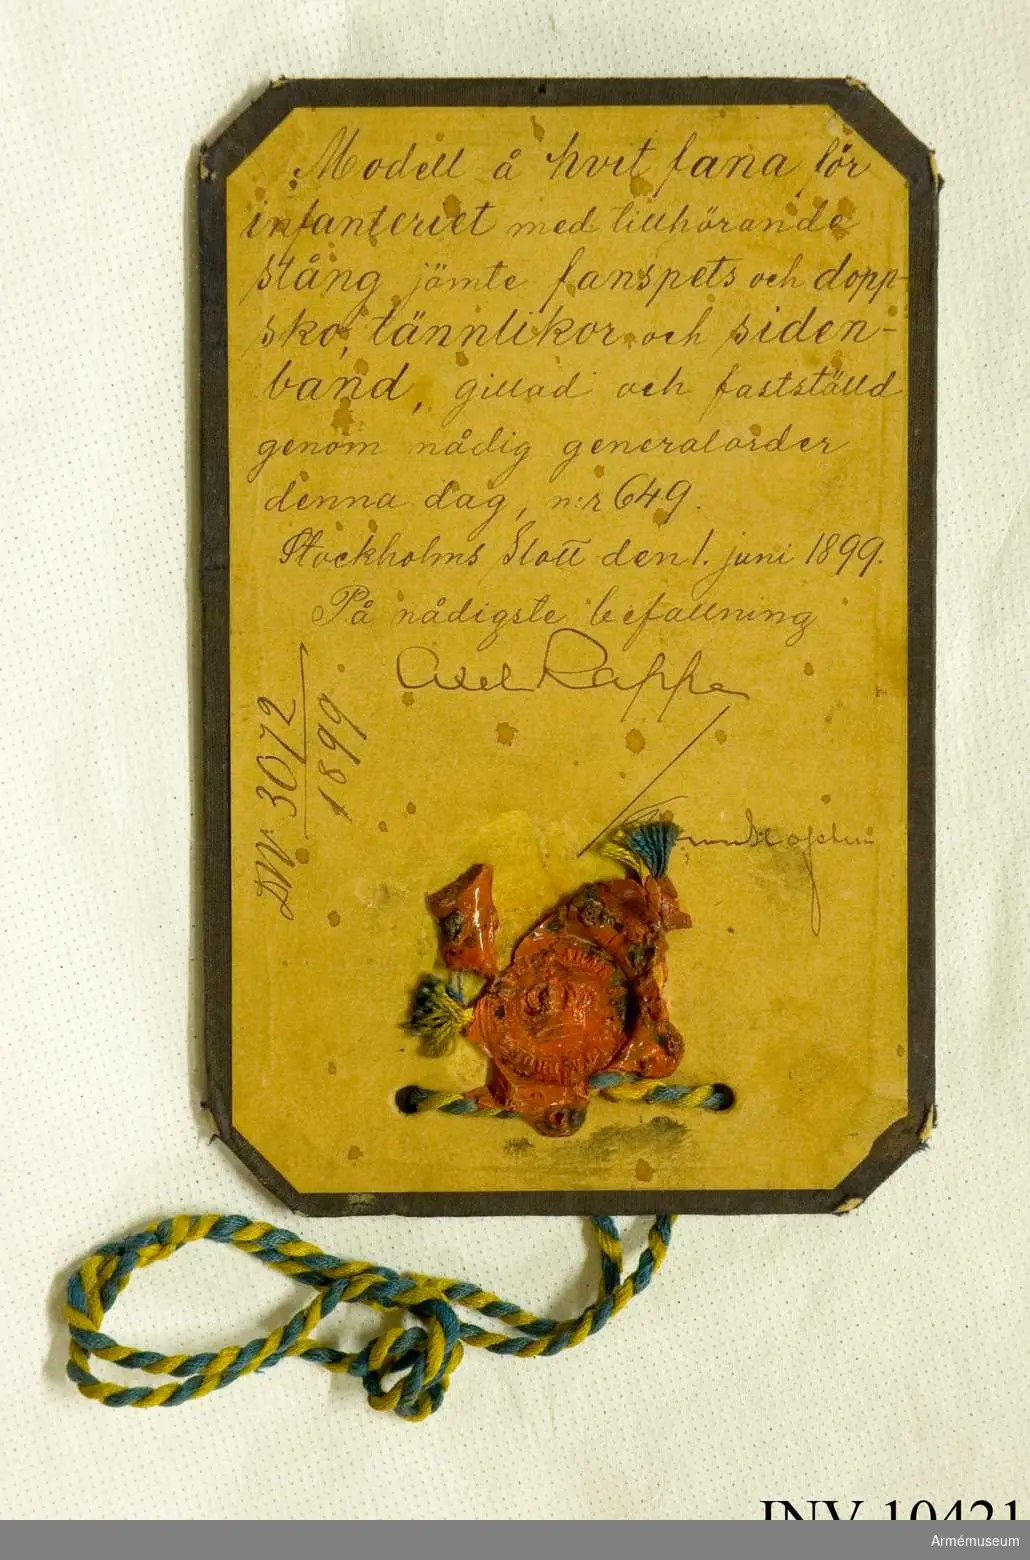 Modell å hvit fana för
infanteriet med tillhörande
stång jämte fanspets och dopp-
sko, tännlikor och siden-
band, gillad och fastställd
genom nådig generalorder
denna dag, n:r 649.
Stockholms Slott den 1. juni 1899.
På nådigste befallning
Axel Rappe
3072
1899.
INV 10421
Armémuseum